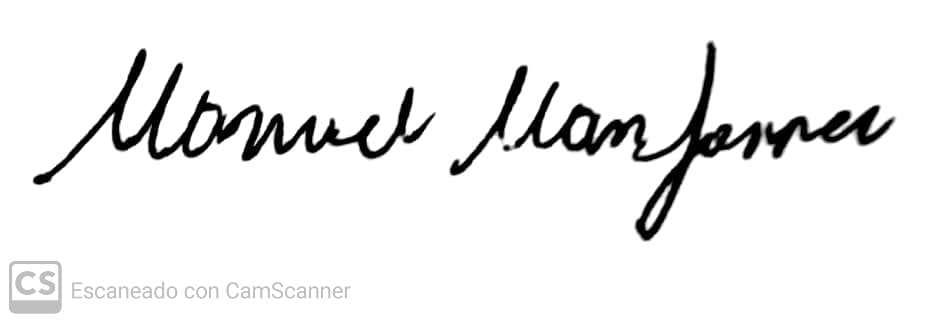 Manuel Manjarrez
CS Escaneado con CamScanner